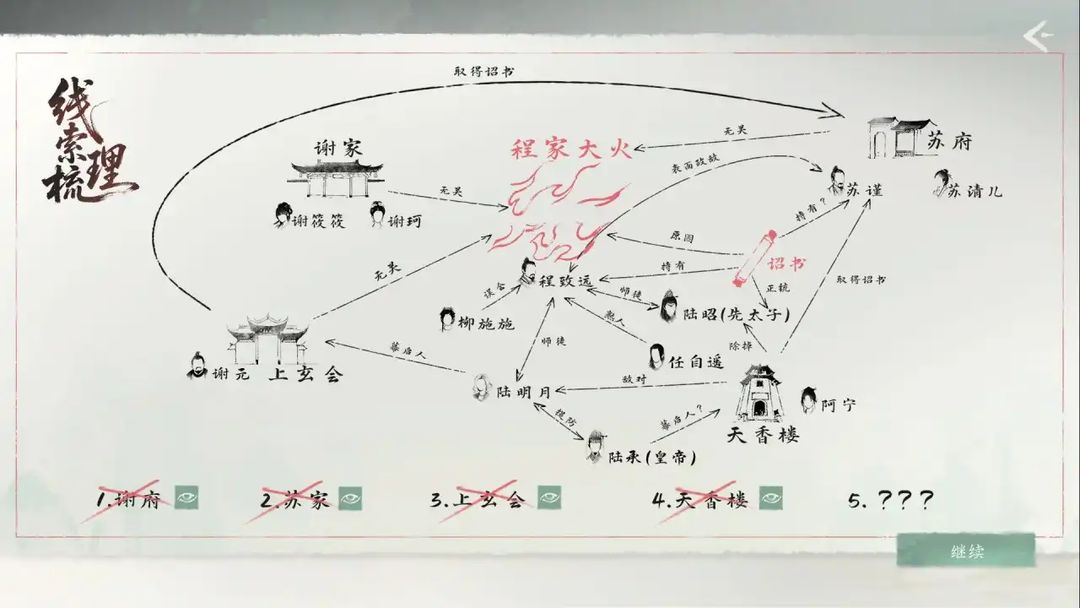 线索梳理
取得诏书
谢家
程家大火
无关
苏府
表面政敌
苏谨
苏清儿
无关
谢筱筱
谢珂
持有?
原因
诏书
无关
持有
程致远
正统
取得诏书
误会
师徒
柳施施
陆昭(先太子)
熟人
师徒
除掉
幕后人
任自遥
谢元
上玄会
敌对
陆明月
阿宁
提防
幕后人?
天香楼
陆承(皇帝)
1.谢府
2.苏家
3.上玄会
4.天香楼
5.???
继续